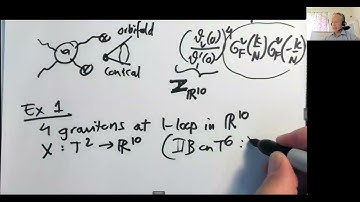 orbifold
conical
(ϑᵢ(0)/ϑ'(0))⁴ G_F²(k/N) G_F²(-k/N)
Z_ℝ10
Ex 1
4 gravitons at 1-loop in ℝ¹⁰
X : T² → ℝ¹⁰ (IIB on T⁶ :